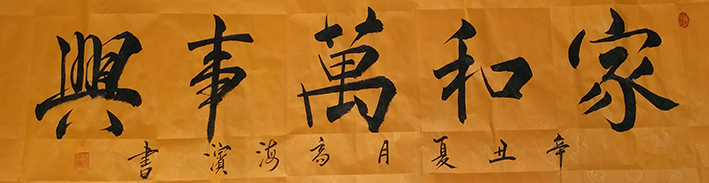 家和萬事興
辛丑夏月高海濱書